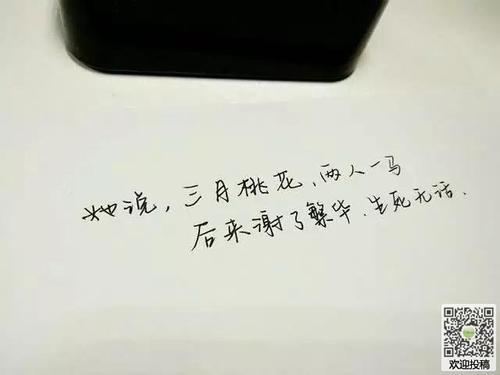 她说，三月桃花、两人一马
后来谢了繁华、生死无话.
欢迎投稿